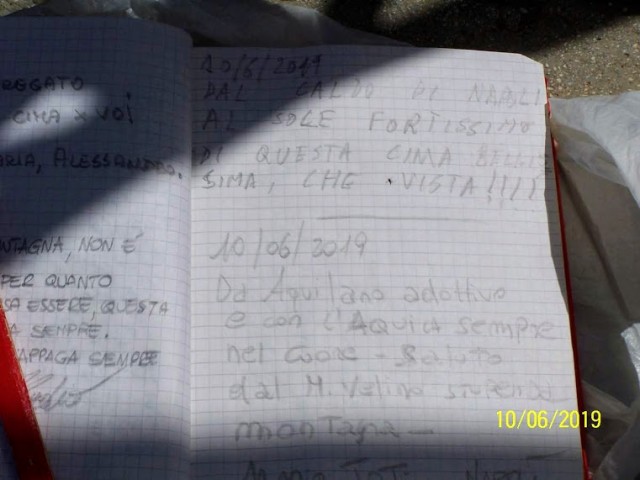 REGATO
CIMA X VOI
ARIA, ALESSANDRO.
NTAGNA, NON É
PER QUANTO
SA ESSERE, QUESTA
A SEMPRE.
APPAGA SEMPRE
10/6/2019
DAL CALDO DI NAPOLI
AL SOLE FORTISSIMO
DI QUESTA CIMA BELLIS
SIMA, CHE VISTA!!!!
10/06/2019
Da Aquilano adottivo
e con l'Aquila sempre
nel cuore - Saluto
dal M. Velino stupenda
montagna -
10/06/2019